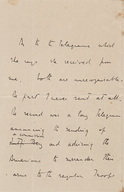 As to the telegrams which
he says he received from
me. Both are unrecognisable.
The first I never sent at all.
The second was a long telegram
announcing
the sending of
and advising the
Armenians to surrender their
arms to the regular troops